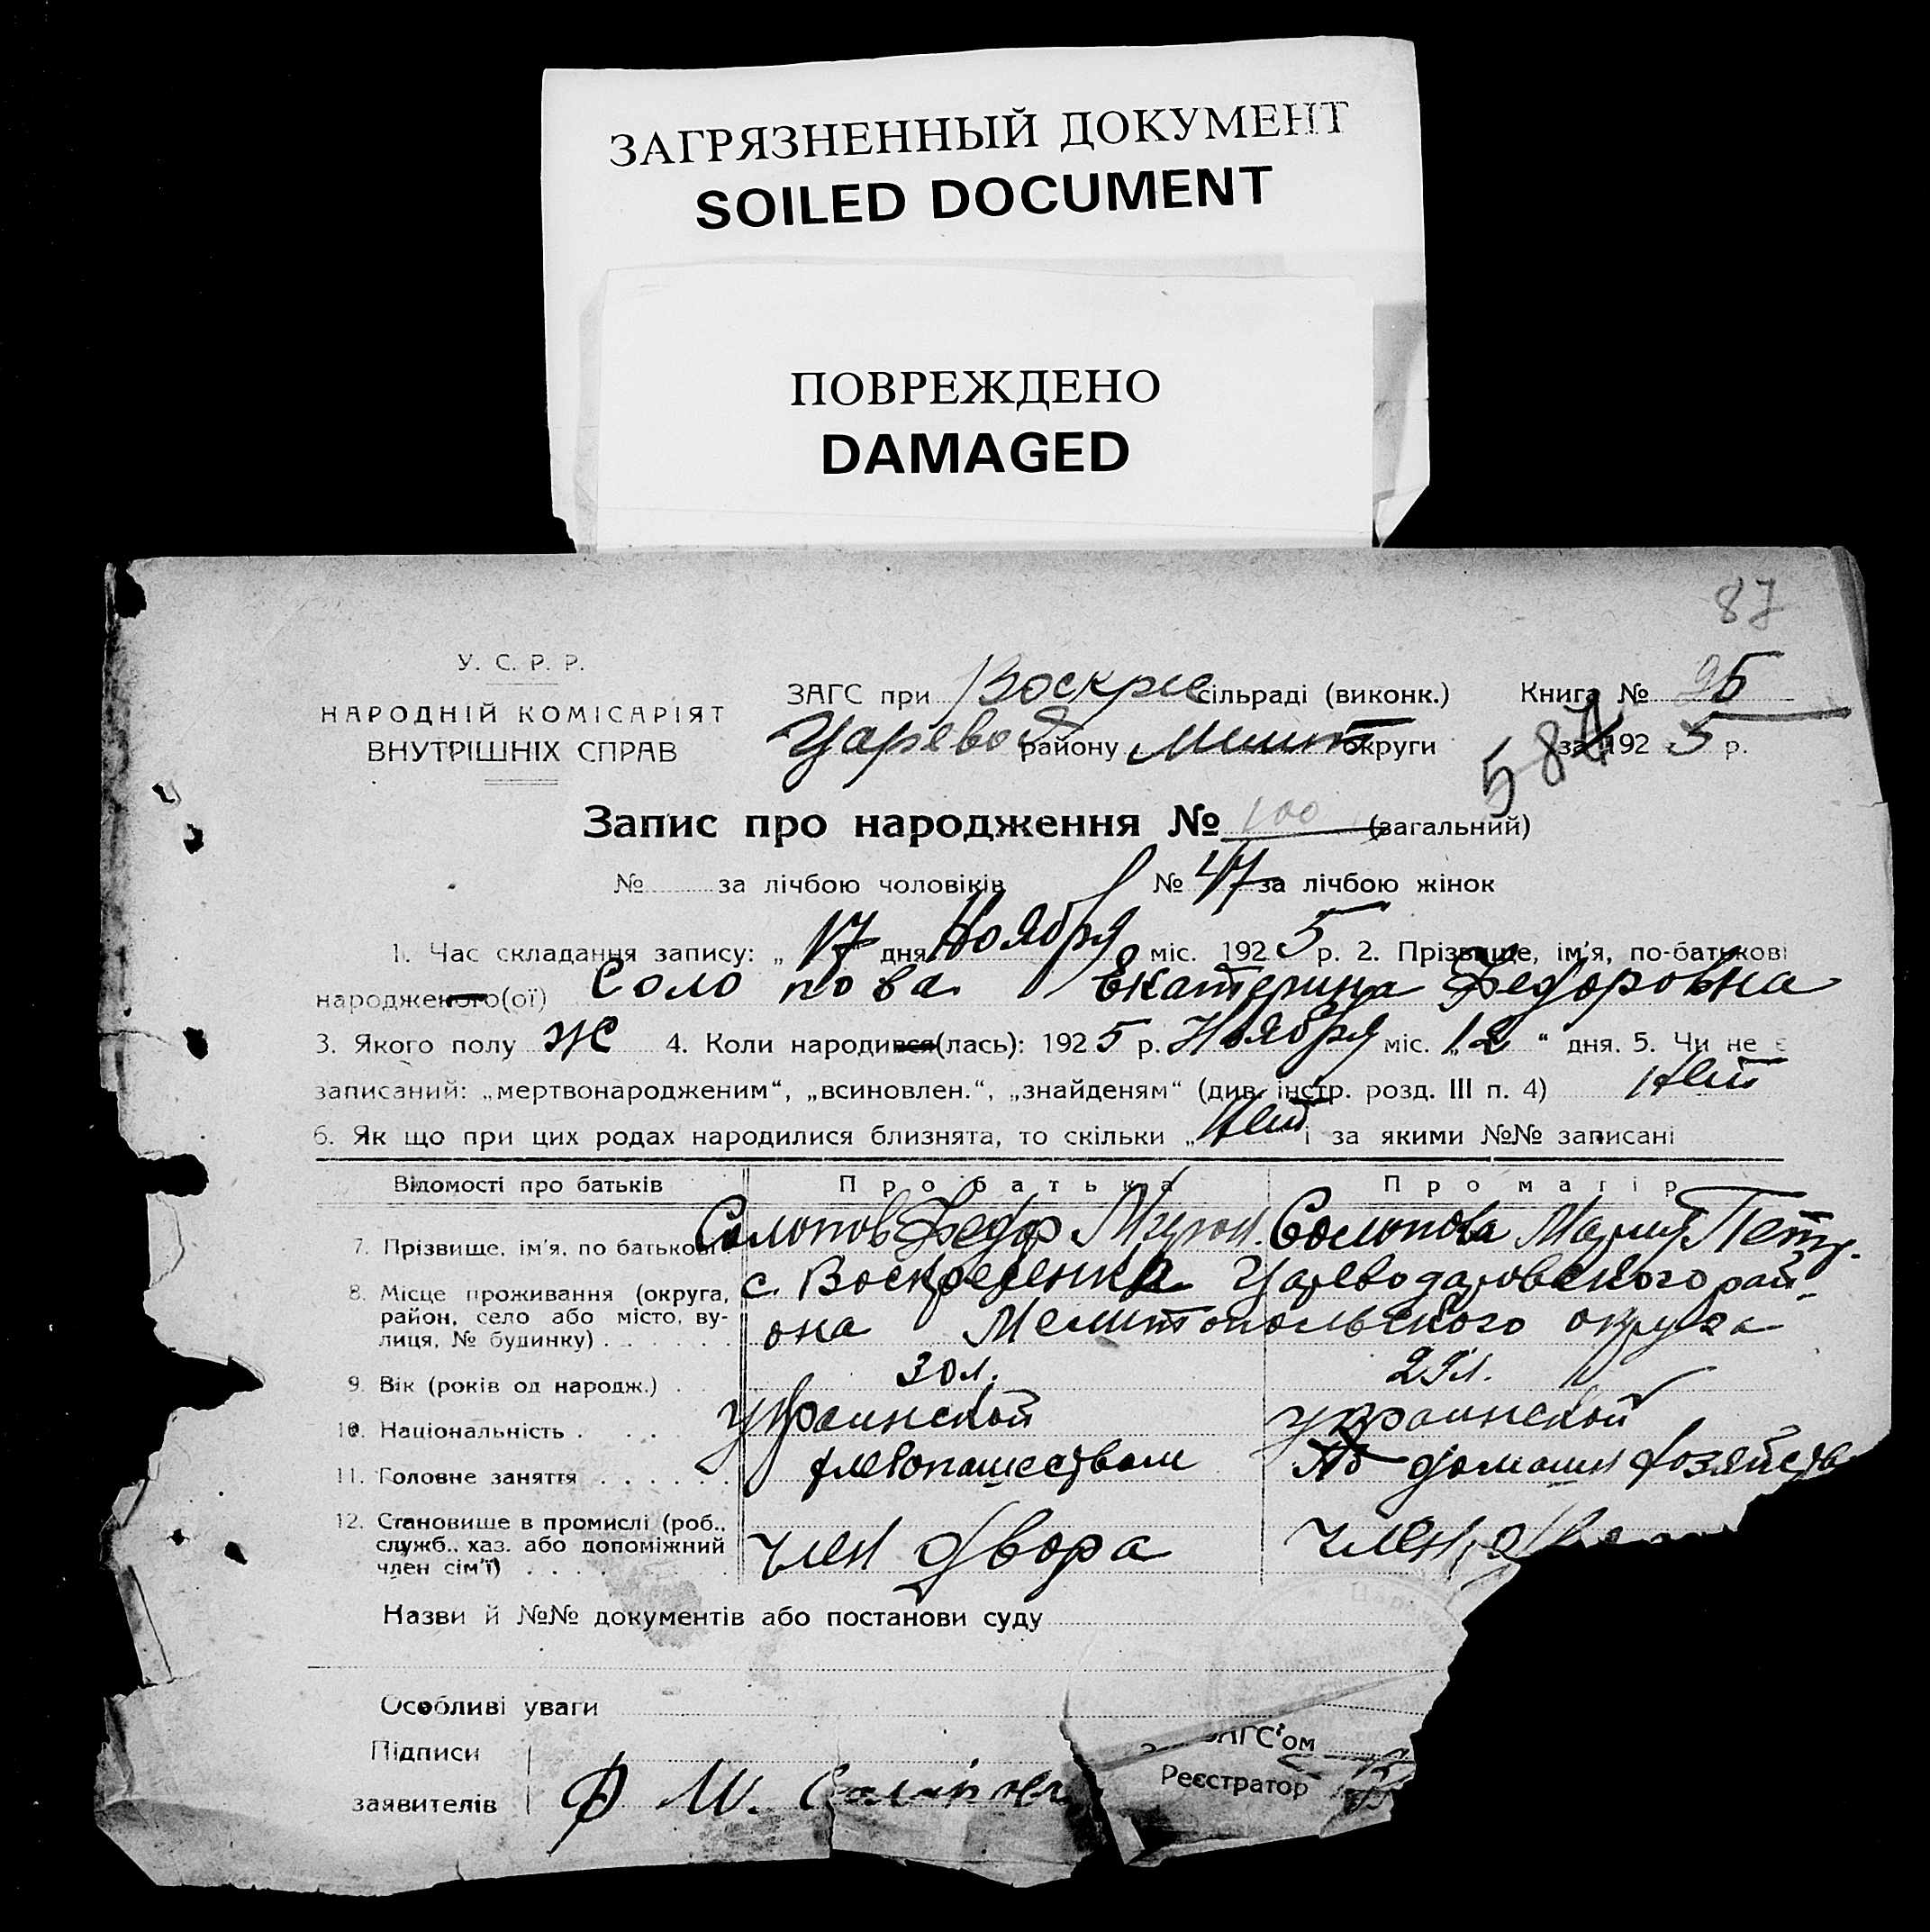 ЗАГРЯЗНЕННЫЙ ДОКУМЕНТ
SOILED DOCUMENT
ПОВРЕЖДЕНО
DAMAGED
87
У. С. Р. Р.
НАРОДНІЙ КОМІСАРІЯТ
ВНУТРІШНІХ СПРАВ
ЗАГС при Воскрес сільраді (виконк.) Книга № 26
Царевод району Мелит округи за 1925 р.
587
Запис про народження № 100 (загальний)
№ за лічбою чоловіків № 47 за лічбою жінок
1. Час складання запису: „ 17 дня Ноября міс. 1925 р. 2. Прізвище, ім'я, по-батькові
народженого(ої) Солопова Екатерина Федоровна
3. Якого полу Ж 4. Коли народився(лась): 1925 р. Ноября міс. „12“ дня. 5. Чи не є
записаний: „мертвонародженим“, „всиновлен.“, „знайденям“ (див. інстр. розд. III п. 4) Нет
6. Як що при цих родах народилися близнята, то скільки „ Нет і за якими №№ записані
Відомості про батьків Про батька Про матір
7. Прізвище, ім'я, по батькові Солопов Федор Солопова Мария Петр.
8. Місце проживання (округа, район, село або місто, вулиця, № будинку) с. Воскресенка Цареводаровского рай-
она Мелитопольского округа
9. Вік (років од народж.) 30 л. 29 л.
10. Національність украинской украинской
11. Головне заняття хлебопашеством домашн хозяйств
12. Становище в промислі (роб., служб., хаз. або допоміжний член сім'ї) член двора член
Назви й №№ документів або постанови суду
Особливі уваги
Підписи
заявителів Ф М.
ЗАГС'ом
Реєстратор